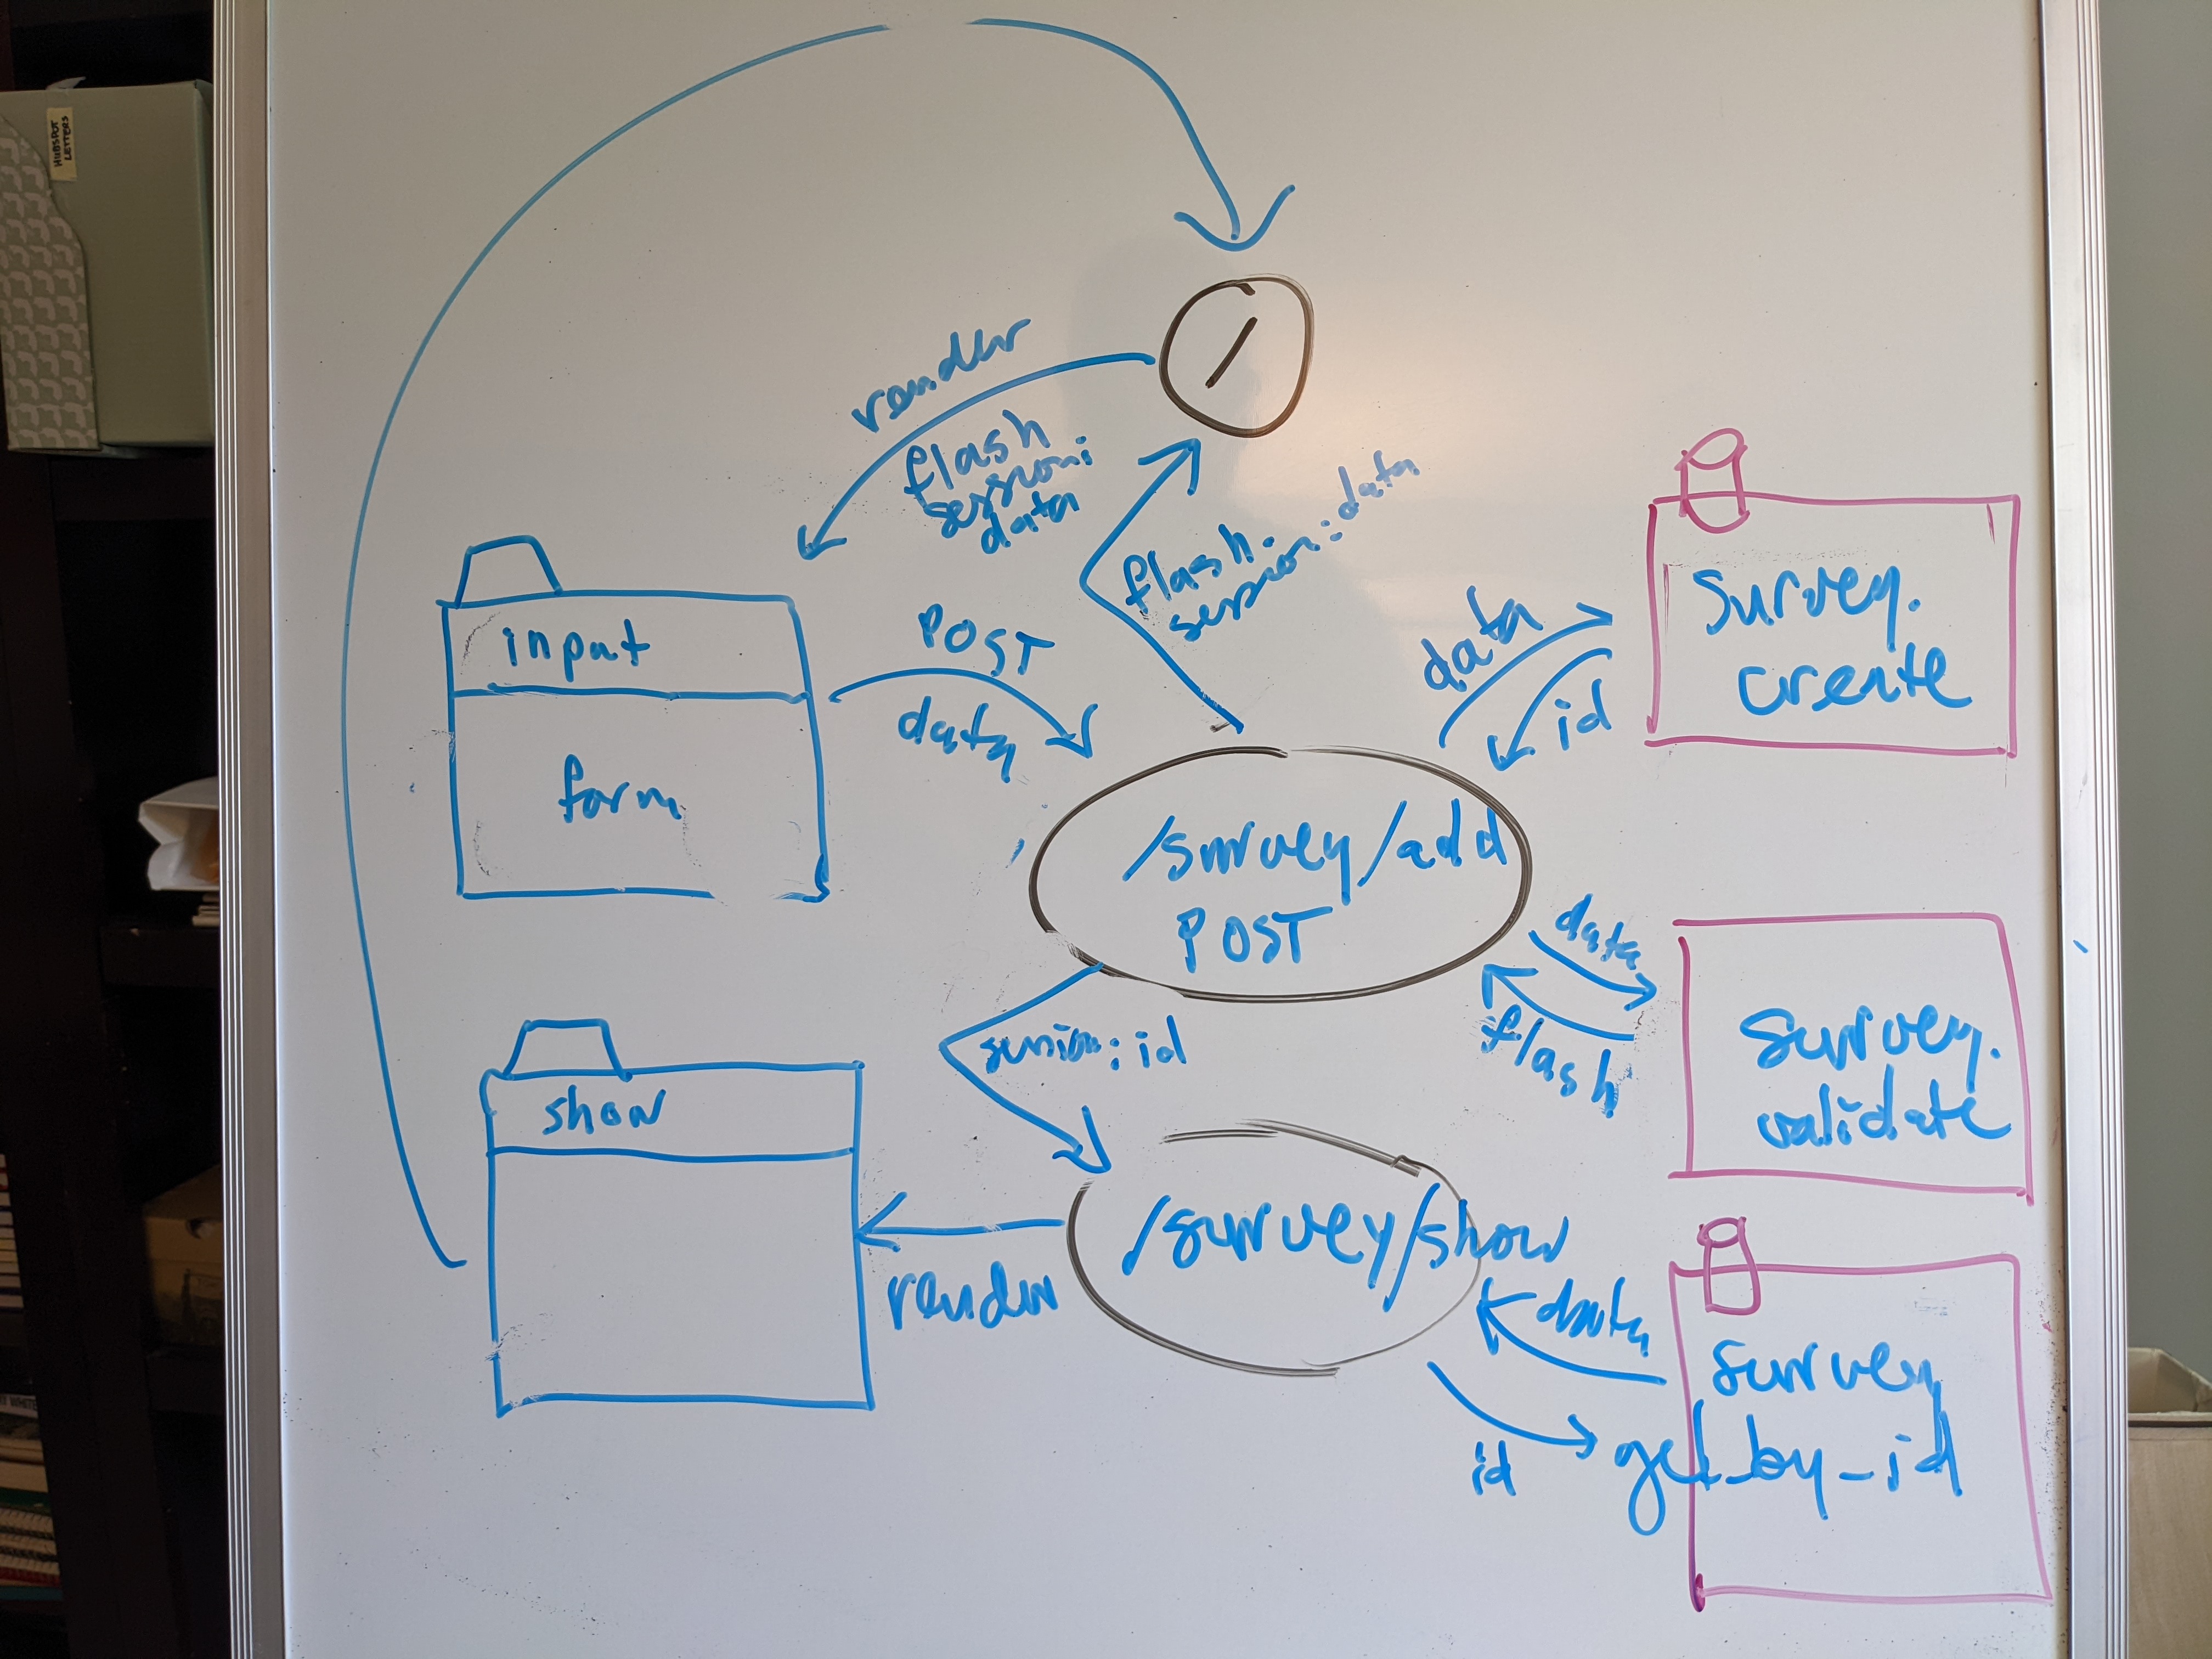 HUBSPOT
LETTERS
/
render
flash
session:
data
flash:
session: data
input
form
POST
data
data
id
survey.
create
/survey/add
POST
data
flash
survey.
validate
session: id
show
render
/survey/show
data
id
survey
get_by_id
WHITE